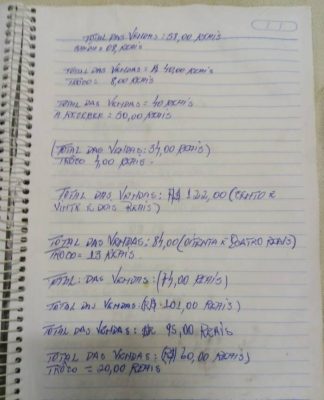 TOTAL DAS VENDAS: 58,00 REAIS
= 08, REAIS
TOTAL DAS VENDAS = 40,00 REAIS
TROCO = 8,00 REAIS
TOTAL DAS VENDAS = 40 REAIS
A RECEBER = 50,00 REAIS
(TOTAL DAS VENDAS: 54,00 REAIS)
TROCO 4,00 REAIS
TOTAL DAS VENDAS: R$ 122,00 (CENTO E
VINTE E DOIS REAIS)
TOTAL DAS VENDAS: 84,00 (OITENTA E QUATRO REAIS)
TROCO = 13 REAIS
TOTAL: DAS VENDAS: (74,00 REAIS)
TOTAL DAS VENDAS: (R$ 101,00 REAIS)
TOTAL DAS VENDAS: 95,00 REAIS
TOTAL DAS VENDAS: (R$ 60,00 REAIS)
TROCO = 20,00 REAIS